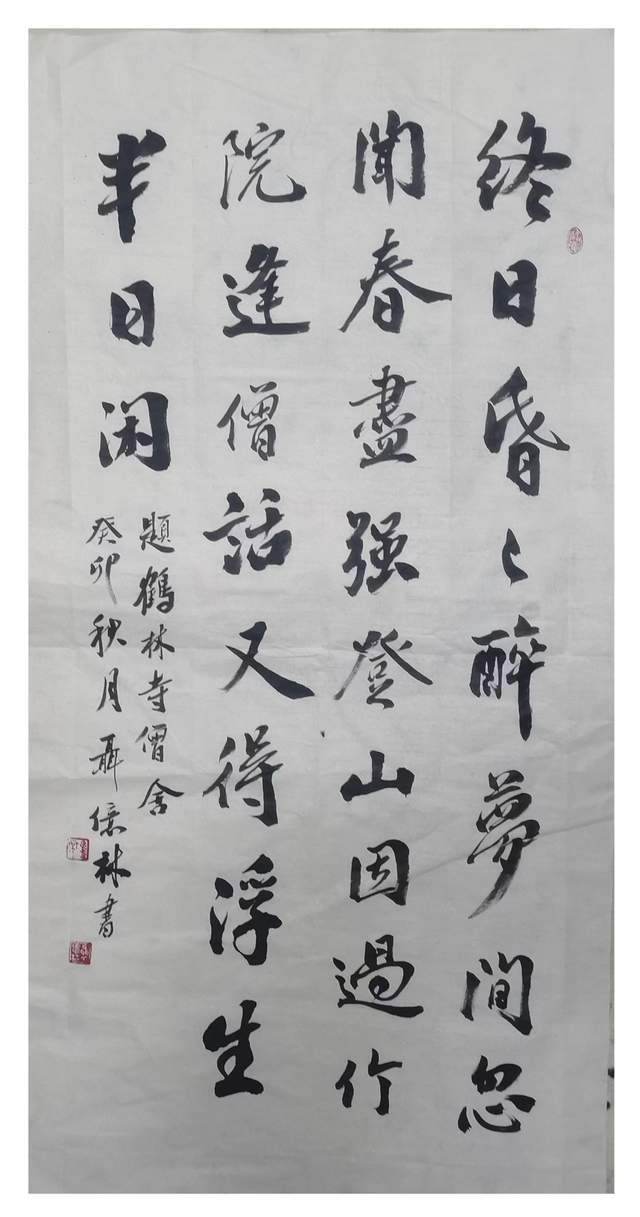 终日昏〻醉夢间忽
闻春盡强登山因過竹
院逢僧話又得浮生
半日闲
題鶴林寺僧舍
癸卯秋月聶億林書